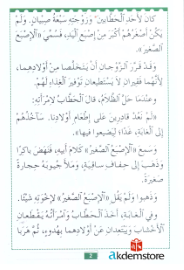 كَانَ لِأَحَدِ الْحَطَّابِينَ وَزَوْجَتِهِ سَبْعَةُ صِبْيَانٍ. وَلَمْ
يَكُنْ أَصْغَرُهُمْ أَكْبَرَ مِنْ إِصْبَعِ الْيَدِ، فَسُمِّيَ «الْإِصْبَعَ
الصَّغِيرَ».
وَقَدْ قَرَّرَ الزَّوْجَانِ أَنْ يَتَخَلَّصَا مِنْ أَوْلَادِهِمَا،
لِأَنَّهُمَا فَقِيرَانِ لَا يَسْتَطِيعَانِ تَوْفِيرَ الْغِذَاءِ لَهُمْ.
وَعِنْدَمَا حَلَّ الظَّلَامُ، قَالَ الْحَطَّابُ لِامْرَأَتِهِ:
«لَمْ نَعُدْ قَادِرِينَ عَلَى إِطْعَامِ أَوْلَادِنَا. سَآخُذُهُمْ
إِلَى الْغَابَةِ، غَدًا، لِيَضِيعُوا فِيهَا».
وَسَمِعَ «الْإِصْبَعُ الصَّغِيرُ» كَلَامَ أَبِيهِ، فَنَهَضَ بَاكِرًا
وَذَهَبَ إِلَى ضِفَافِ سَاقِيَةٍ، وَمَلَأَ جُيُوبَهُ حِجَارَةً
صَغِيرَةً.
وَذَهَبُوا وَلَمْ يَقُلِ «الْإِصْبَعُ الصَّغِيرُ» لِإِخْوَتِهِ شَيْئًا.
وَفِي الْغَابَةِ، أَخَذَ الْحَطَّابُ وَامْرَأَتُهُ يَقْطَعَانِ
الْأَخْشَابَ وَيَبْتَعِدَانِ عَنْ أَوْلَادِهِمَا بِهُدُوءٍ، ثُمَّ هَرَبَا
2
Akdemstore